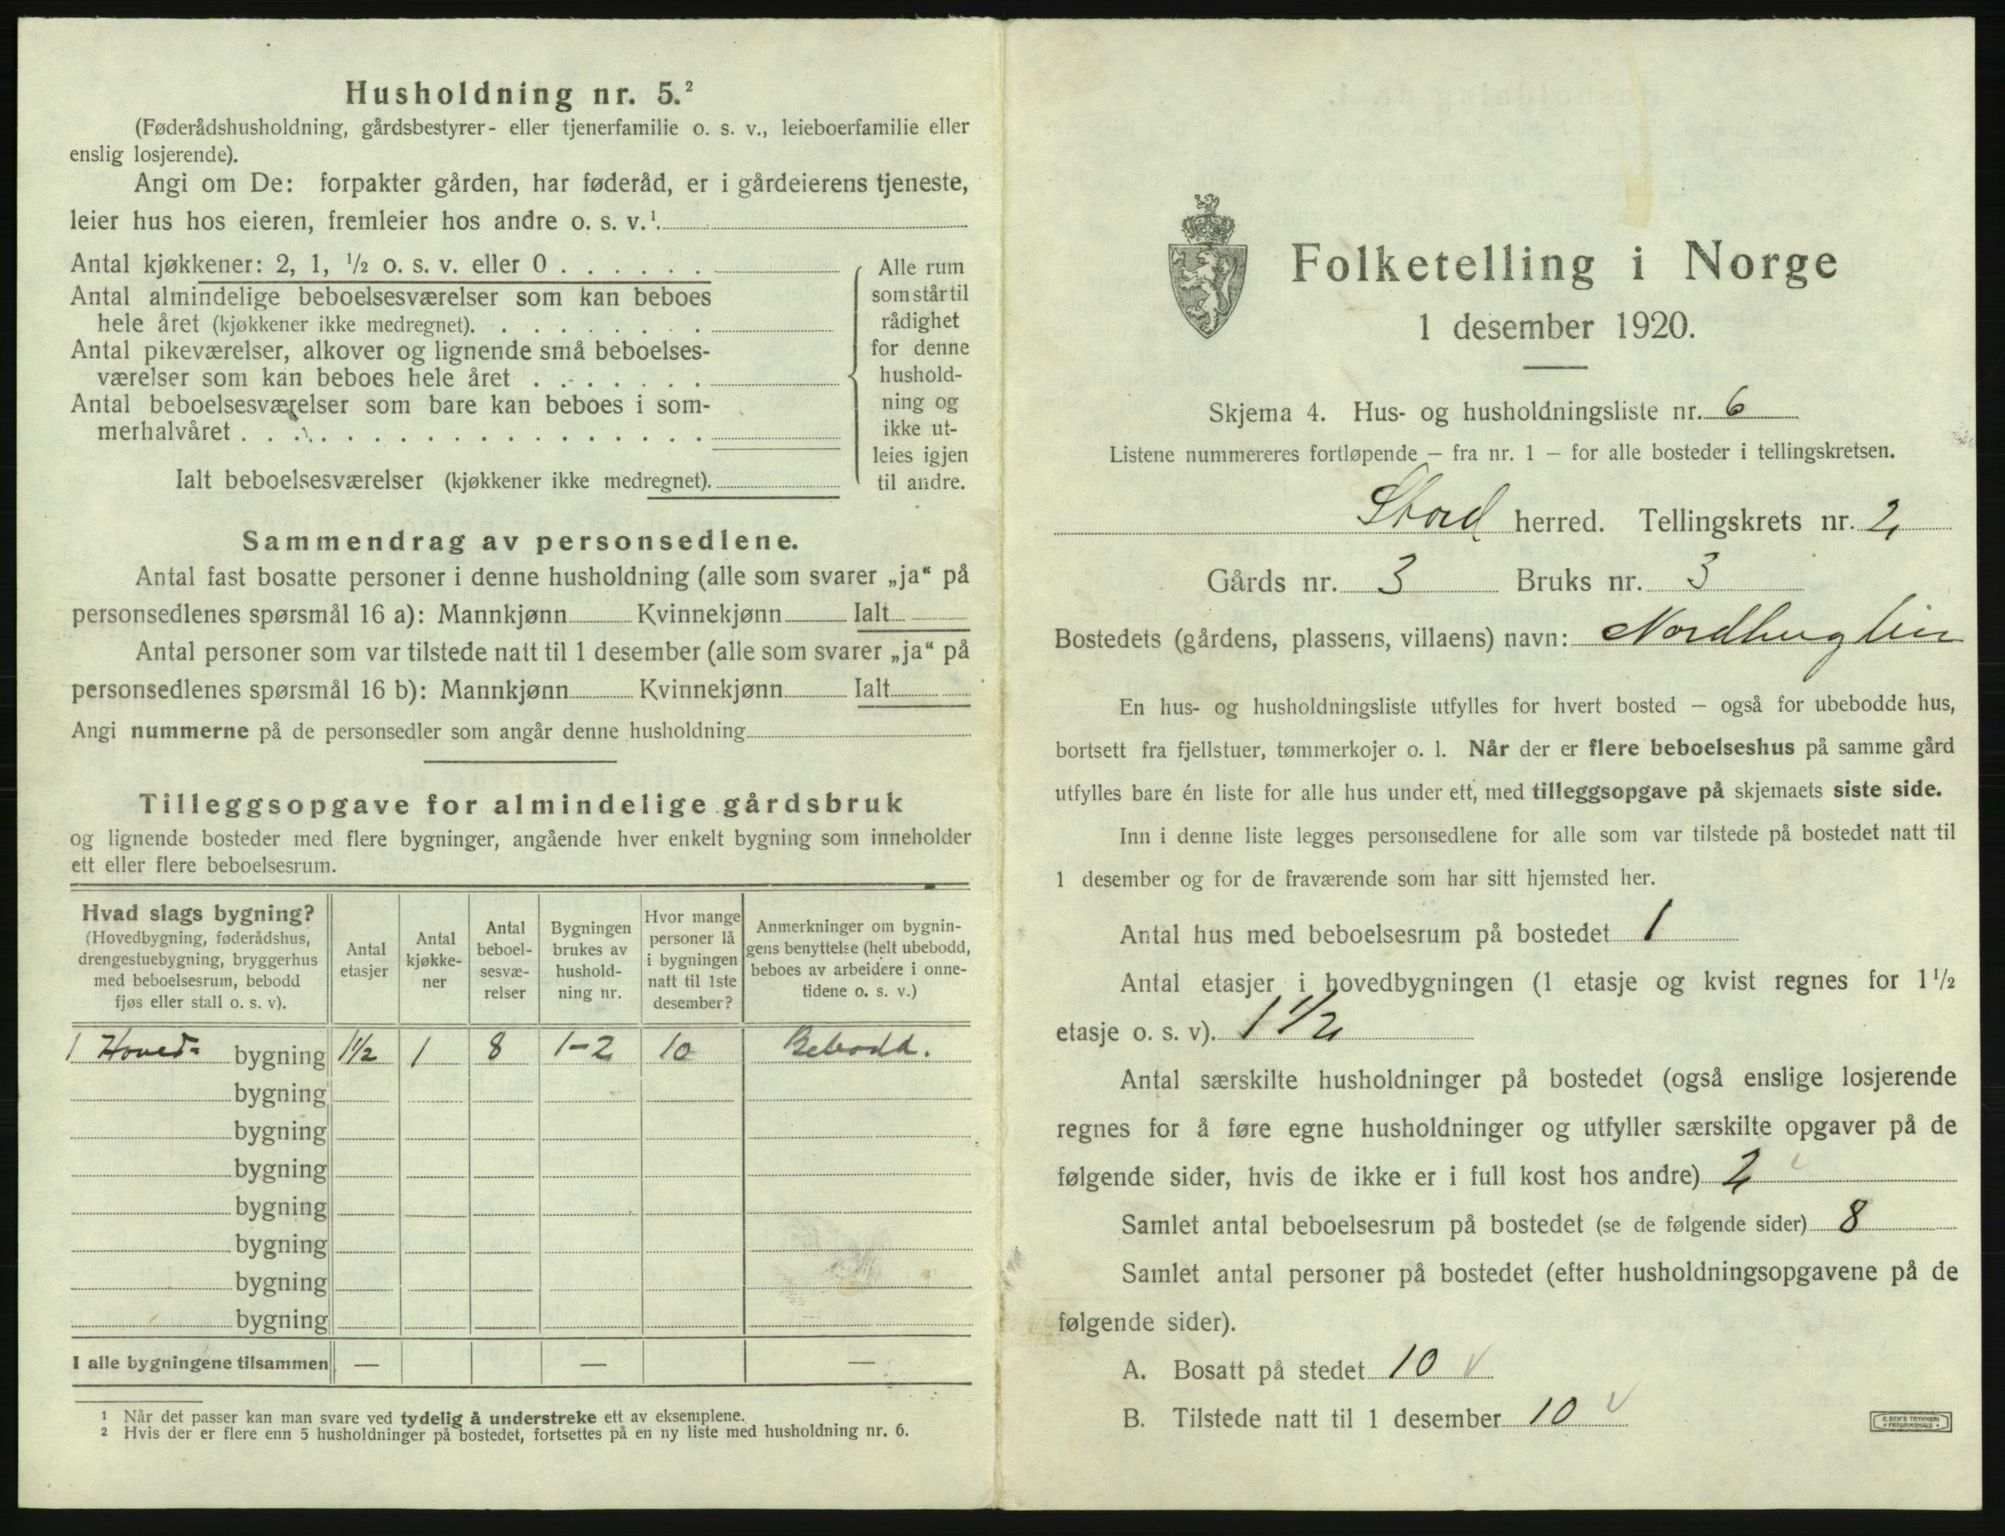 Husholdning nr. 5.²
(Føderådshusholdning, gårdsbestyrer- eller tjenerfamilie o. s. v., leieboerfamilie eller
enslig losjerende).
Angi om De: forpakter gården, har føderåd, er i gårdeierens tjeneste,
leier hus hos eieren, fremleier hos andre o. s. v.¹.
Antal kjøkkener: 2, 1, ½ o. s. v. eller 0 . . . . . .
Antal almindelige beboelsesværelser som kan beboes
hele året (kjøkkener ikke medregnet). . . . . . . . .
Antal pikeværelser, alkover og lignende små beboelses-
værelser som kan beboes hele året . . . . . . .
Antal beboelsesværelser som bare kan beboes i som-
merhalvåret . . . . . . . . . . . . . . . . . .
Ialt beboelsesværelser (kjøkkener ikke medregnet).
Alle rum
som står til
rådighet
for denne
hushold-
ning og
ikke ut-
leies igjen
til andre.
Sammendrag av personsedlene.
Antal fast bosatte personer i denne husholdning (alle som svarer „ja“ på
personsedlenes spørsmål 16 a): Mannkjønn Kvinnekjønn Ialt
Antal personer som var tilstede natt til 1 desember (alle som svarer „ja“ på
personsedlenes spørsmål 16 b): Mannkjønn Kvinnekjønn Ialt
Angi nummerne på de personsedler som angår denne husholdning
Tilleggsopgave for almindelige gårdsbruk
og lignende bosteder med flere bygninger, angående hver enkelt bygning som inneholder
ett eller flere beboelsesrum.
Hvad slags bygning?
(Hovedbygning, føderådshus,
drengestuebygning, bryggerhus
med beboelsesrum, bebodd
fjøs eller stall o. s. v).
Antal
etasjer
Antal
kjøkke-
ner
Antal
beboel-
sesvæ-
relser
Bygningen
brukes av
hushold-
ning nr.
Hvor mange
personer lå
i bygningen
natt til 1ste
desember?
Anmerkninger om bygnin-
gens benyttelse (helt ubebodd,
beboes av arbeidere i onne-
tidene o. s. v.)
1 Hoved= bygning 1½ 1 8 1-2 10 Bebodd.
bygning
bygning
bygning
bygning
bygning
bygning
bygning
I alle bygningene tilsammen — — —
¹ Når det passer kan man svare ved tydelig å understreke ett av eksemplene.
² Hvis der er flere enn 5 husholdninger på bostedet, fortsettes på en ny liste med husholdning nr. 6.
Folketelling i Norge
1 desember 1920.
Skjema 4. Hus- og husholdningsliste nr. 6
Listene nummereres fortløpende — fra nr. 1 — for alle bosteder i tellingskretsen.
Stord herred. Tellingskrets nr. 2
Gårds nr. 3 Bruks nr. 3
Bostedets (gårdens, plassens, villaens) navn:
En hus- og husholdningsliste utfylles for hvert bosted — også for ubebodde hus,
bortsett fra fjellstuer, tømmerkojer o. l. Når der er flere beboelseshus på samme gård
utfylles bare én liste for alle hus under ett, med tilleggsopgave på skjemaets siste side.
Inn i denne liste legges personsedlene for alle som var tilstede på bostedet natt til
1 desember og for de fraværende som har sitt hjemsted her.
Antal hus med beboelsesrum på bostedet 1
Antal etasjer i hovedbygningen (1 etasje og kvist regnes for 1½
etasje o. s. v). 1½
Antal særskilte husholdninger på bostedet (også enslige losjerende
regnes for å føre egne husholdninger og utfyller særskilte opgaver på de
følgende sider, hvis de ikke er i full kost hos andre) 2
Samlet antal beboelsesrum på bostedet (se de følgende sider) 8
Samlet antal personer på bostedet (efter husholdningsopgavene på de
følgende sider).
A. Bosatt på stedet 10
B. Tilstede natt til 1 desember 10
E. SEM'S TRYKKERI
FREDRIKSHALD